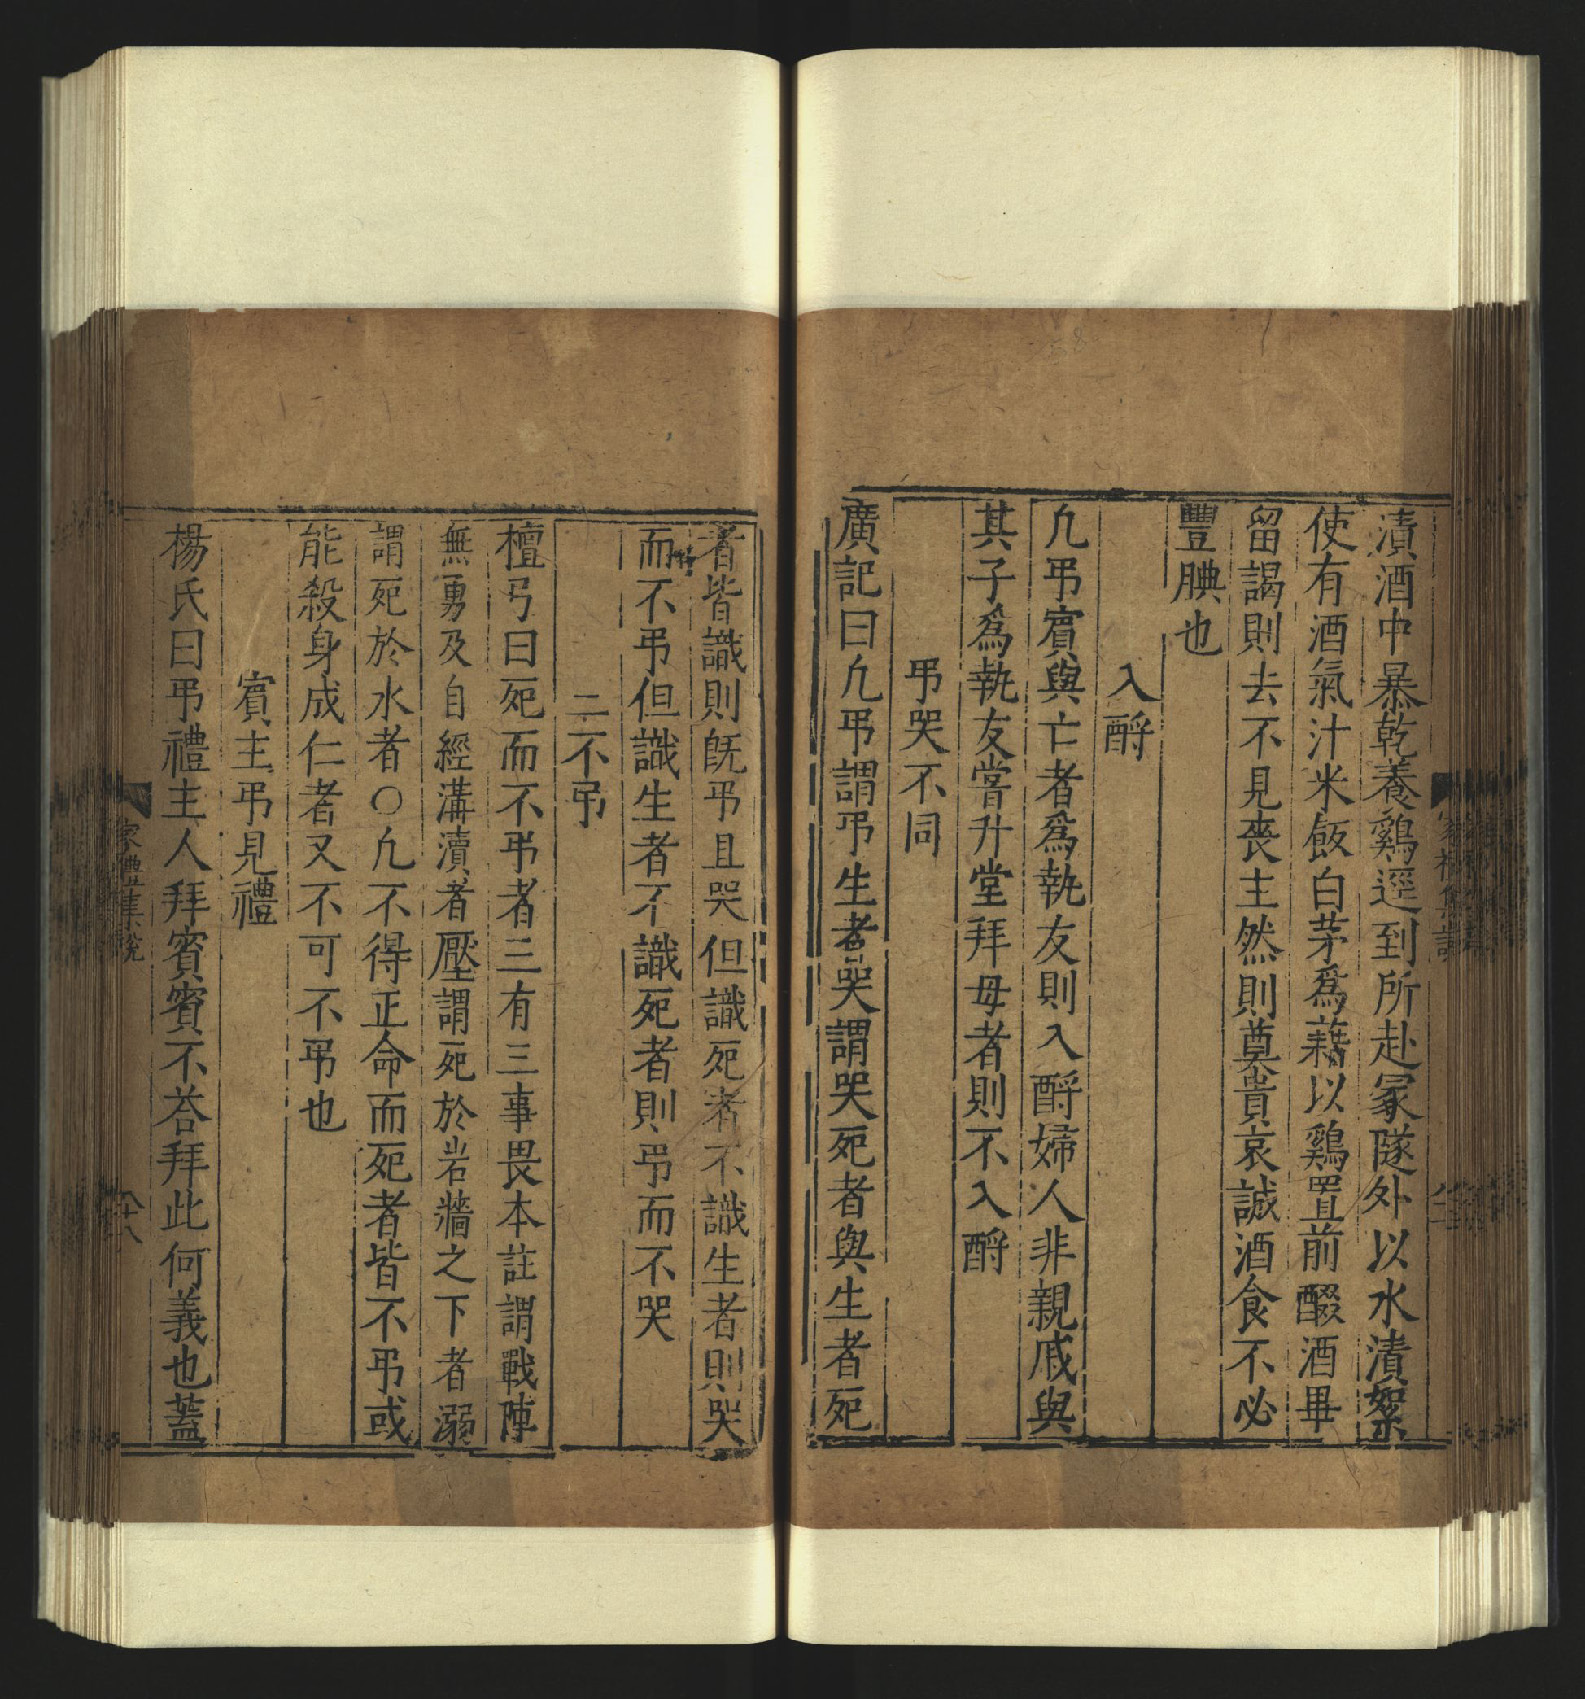 漬酒中暴乾養鷄逕到所赴冢隧外以水漬絮
使有酒氣汁米飯白茅爲藉以鷄置前醊酒畢
留謁則去不見丧主然則奠貴哀誠酒食不必
豐腆也
入酹
凢弔賔與亡者爲執友則入酹婦人非親戚與
其子爲執友甞升堂拜母者則不入酹
弔哭不同
廣記曰凢弔謂弔生者哭謂哭死者與生者死
者皆識則旣弔且哭但識死者不識生者則哭
而不弔但識生者不識死者則弔而不哭
二不弔
檀弓曰死而不弔者三有三事畏本註謂戰陣
無勇及自經溝瀆者壓謂死於岩牆之下者溺
謂死於水者○凢不得正命而死者皆不弔或
能殺身成仁者又不可不弔也
賔主弔見禮
楊氏曰弔禮主人拜賓賓不荅拜此何義也蓋
家禮集說
六十八